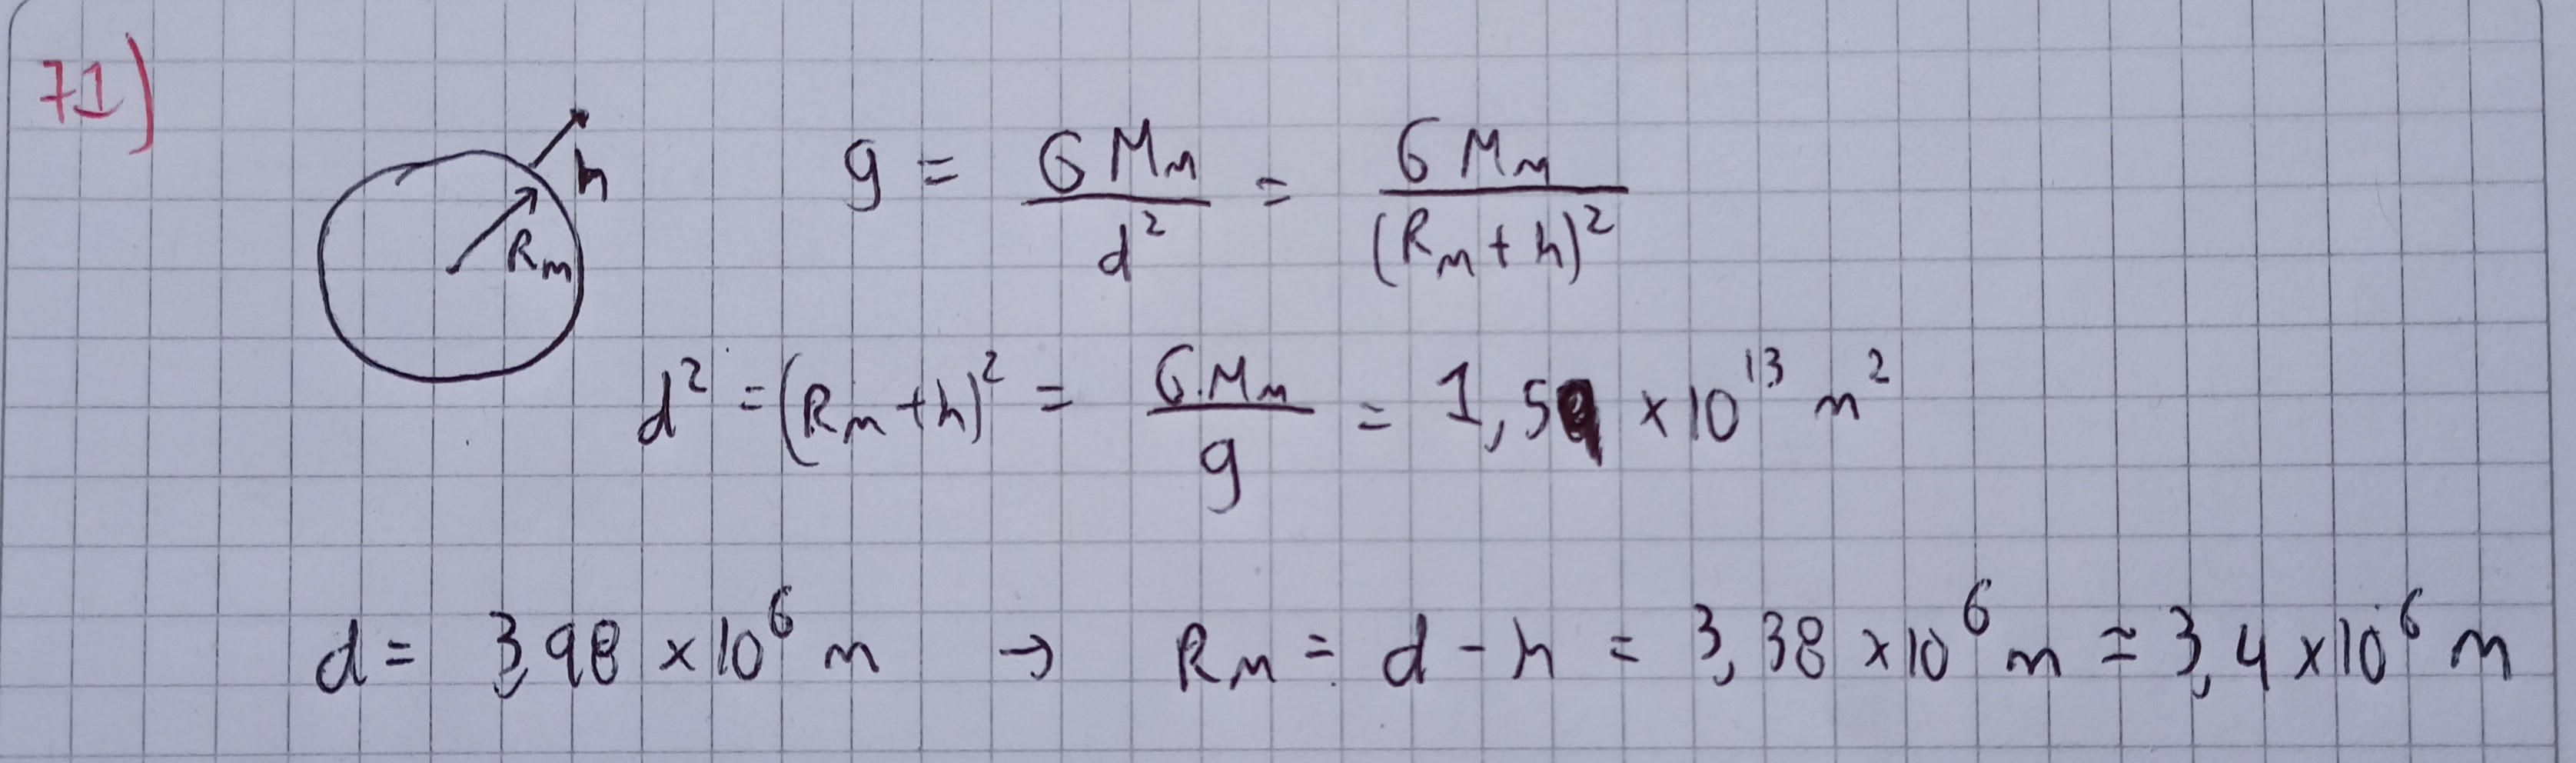 71)
h
R_m
g = G M_m / d² = G M_m / (R_m + h)²
d² = (R_m + h)² = G.M_m / g = 1,59 × 10¹³ m²
d = 3,98 × 10⁶ m → R_m = d - h = 3,38 × 10⁶ m ≃ 3,4 × 10⁶ m